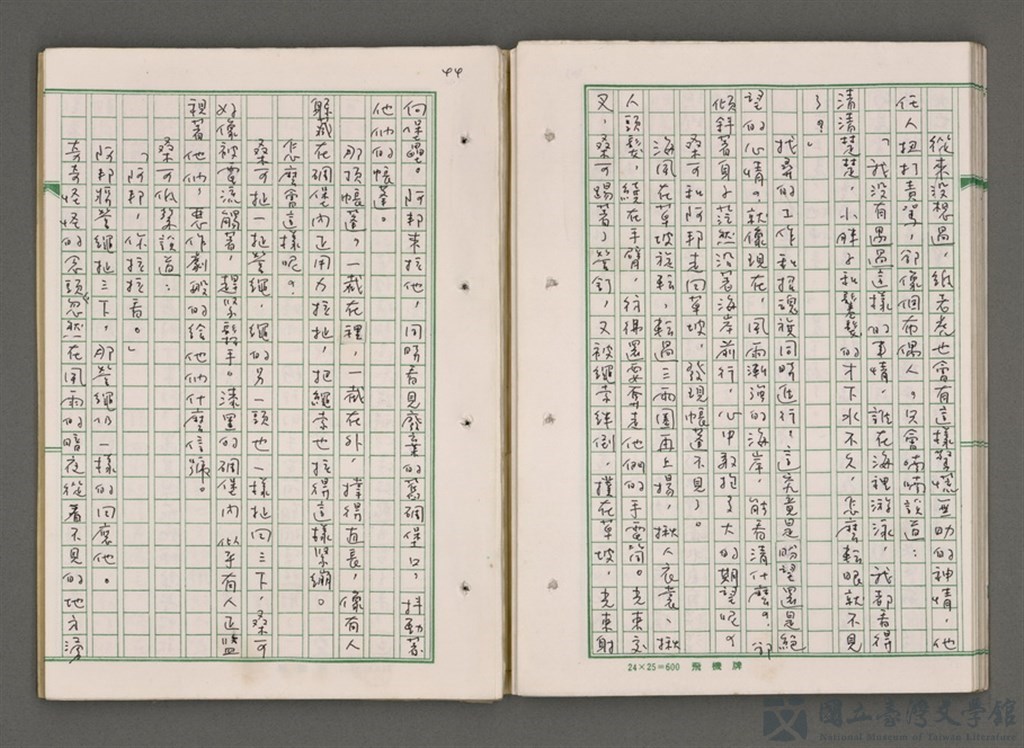 從來沒想過，紙老虎也會有這樣驚慌無助的神情，他
任人扭打責駡，卻像個布偶人。只會喃喃說道：
「我沒有遇過這樣的事情，誰在海裡游泳，我都看得
清清楚楚，小胖子和鬈髮的才下水不久，怎麼轉眼就不見
了？」
找尋的工作和招魂旗同時進行，這究竟是盼望還是絕
望的心情。就像現在，風雨漸強的海岸，能看清什麼？卻
傾斜著身子茫然沿著海岸前行，心中敢抱了大的期望呢？
桑可和阿邦走回草坡，發現帳蓬不見了。
海風在草坡旋轉，轉過三兩圈再上揚，揪人衣裳、揪
人頭髮，繞在手臂，彷彿還要奔走他們的手電筒。光束交
叉，桑可踢著了營釘，又被繩索絆倒，撲在草坡，光束射
24×25=600 飛機牌
44
向堡壘。阿邦來拉他，同時看見廢棄的舊碉堡口，抖動著
他們的帳蓬。
那頂帳蓬，一截在裡，一截在外，撐得直長，像有人
躲藏在碉堡內正用力拉扯，把繩索也拉得這樣緊繃。
怎麼會這樣呢？
桑可扯一扯營繩，繩的另一頭也一樣扯回三下，桑可
好像被電流觸著，趕緊鬆手。漆黑的碉堡內，似乎有人正監
視著他們，惡作劇般的給他們什麼信號。
桑可低聲說道：
「阿邦，你拉拉看。」
阿邦將營繩扯三下，那營繩仍一樣的回應他。
奇奇怪怪的念頭忽然在風雨的暗夜從看不見的地方湧
國立臺灣文學館
National Museum of Taiwan Literature